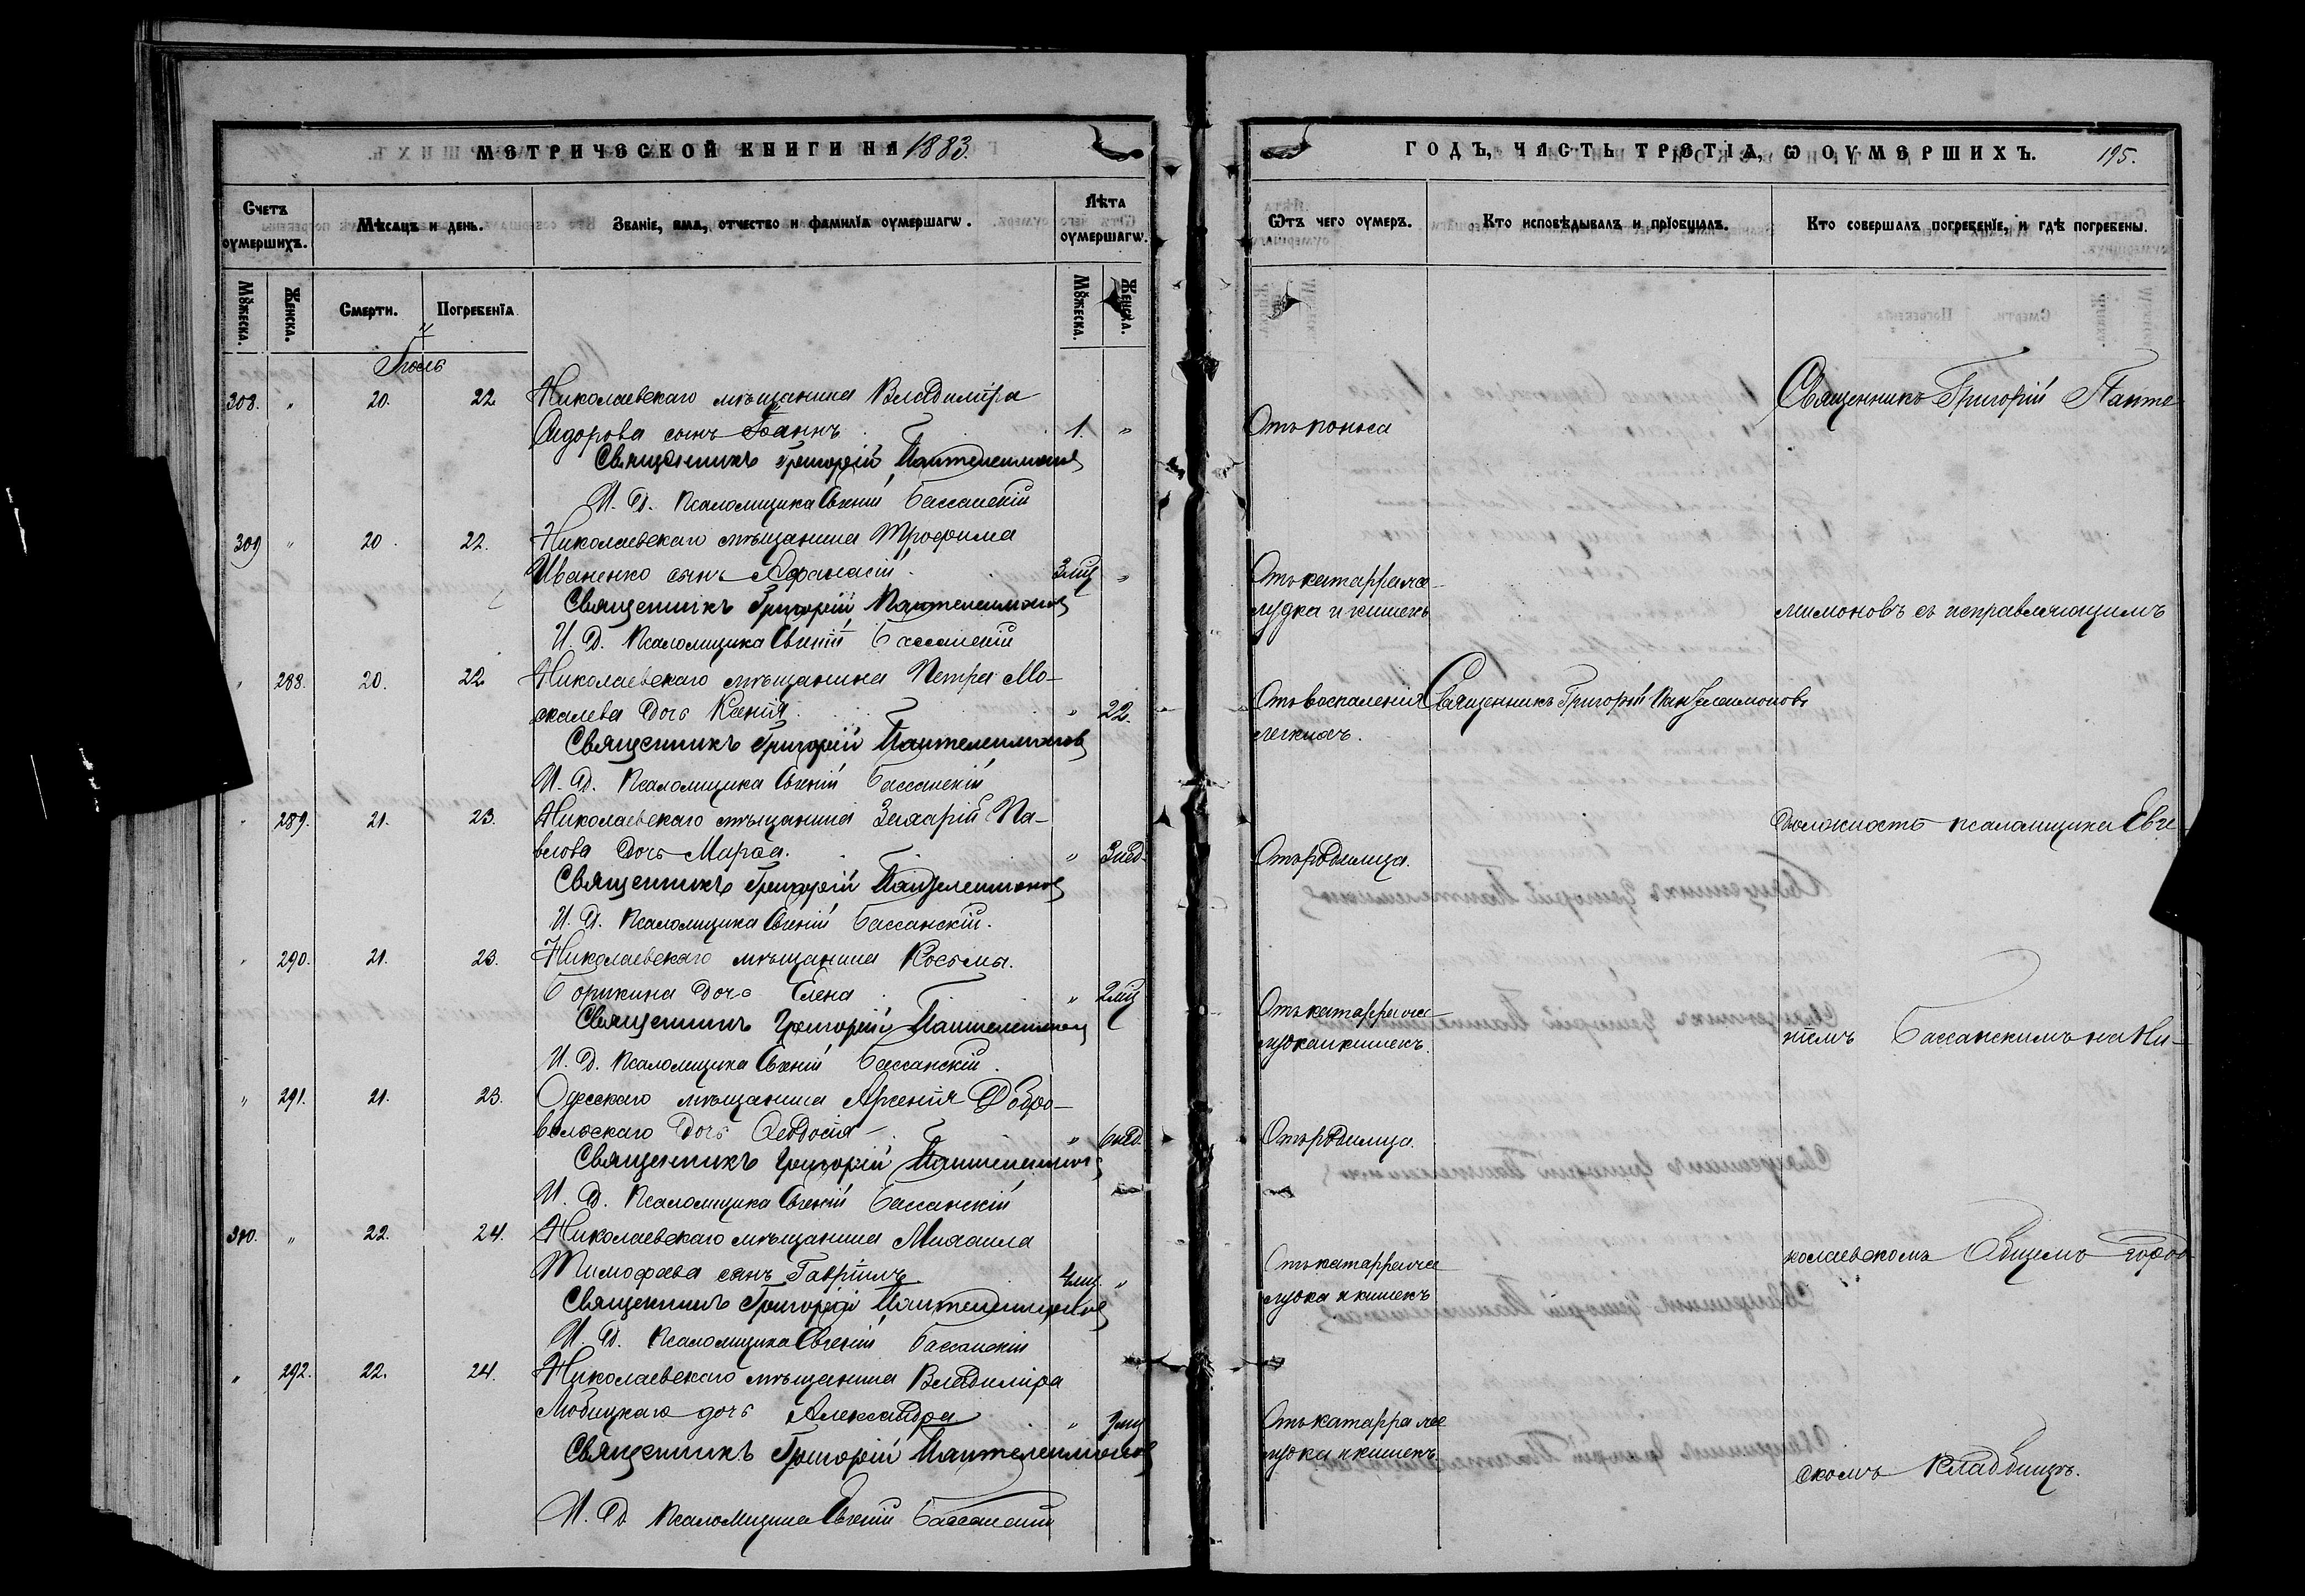 МЕТРИЧЕСКОЙ КНИГИ НА 1883.
Счетъ оумершихъ.
Мѣсяцъ и день.
Званіе, имя, отчество и фамилїа оумершагѡ.
Лѣта оумершагѡ.
Мꙋжеска.
Женска.
Смерти.
Погребенїа
Мꙋжеска.
Женска.
Іюль
308. " 20. 22 Николаевскаго мѣщанина Владиміра
Сидорова сынъ Іоаннъ 1. "
Священникъ Григорій Пантелеимоновъ
И. Д. Псаломщика Евгеній Бассанскій
309 " 20. 22. Николаевскаго мѣщанина Трофима
Иваненко сынъ Афанасій. 3 мц "
Священникъ Григорій Пантелеимоновъ
И. Д. Псаломщика Евгеній Бассанскій
" 288. 20. 22 Николаевскаго мѣщанина Петра Мо-
скалева дочь Ксенія " 22.
Священникъ Григорій Пантелеимоновъ
И. Д. Псаломщика Евгеній Бассанскій
" 289. 21. 23. Николаевскаго мѣщанина Захарій Па-
влова дочь Марфа. " 3 нед.
Священникъ Григорій Пантелеимоновъ
И. Д. Псаломщика Евгеній Бассанскій.
" 290. 21. 23. Николаевскаго мѣщанина Косьмы.
дочь Елена " 2 мц
Священникъ Григорій Пантелеимоновъ
И. Д. Псаломщика Евгеній Бассанскій.
" 291. 21. 23. Одесскаго мѣщанина Арсенія Добро-
вольскаго дочь Ѳеодосія " 6 нед.
Священникъ Григорій Пантелеимоновъ
И. Д. Псаломщика Евгеній Бассанскій
310. " 22. 24. Николаевскаго мѣщанина Михаила
Тимофѣева сынъ Гавріилъ 4 мц. "
Священникъ Григорій Пантелеимоновъ
И. Д. Псаломщика Евгеній Бассанскій
" 292. 22. 24. Николаевскаго мѣщанина Владиміра
дочь Александра " 3 мц
Священникъ Григорій Пантелеимоновъ
И. Д. Псаломщика Евгеній Бассанскій
ГОДЪ, ЧАСТЬ ТРЕТІА, Ѡ ОУМЕРШИХЪ. 195.
Ѿтъ чего оумеръ.
Кто исповѣдывалъ и прїобщалъ.
Кто совершалъ погребенїе, и гдѣ погребены.
Священникъ Григорій Панте-
Отъ поноса
Отъ катарра же-
лудка и кишекъ
лимоновъ съ исправляющимъ
Отъ воспаленія Священникъ Григорій Пантелеимоновъ
легкихъ.
должность псаломщика Евге-
Отъ родимца.
Отъ катарра же-
лудка и кишекъ.
ніемъ Бассанскимъ на Ни-
Отъ родимца.
колаевскомъ Общемъ город-
Отъ катарра же-
лудка и кишекъ
Отъ катарра же-
лудка и кишекъ
скомъ Кладбищѣ.